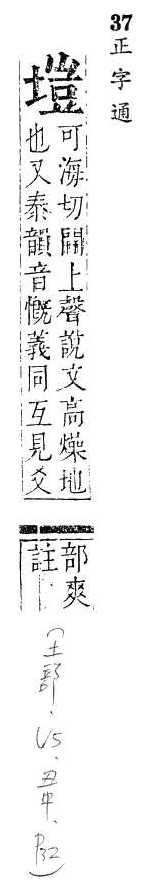 37
正字通
塏
可海切開上聲說文高燥地
也又泰韻音慨義同互見爻
部爽
註
(土部.U5.丑中.P32)